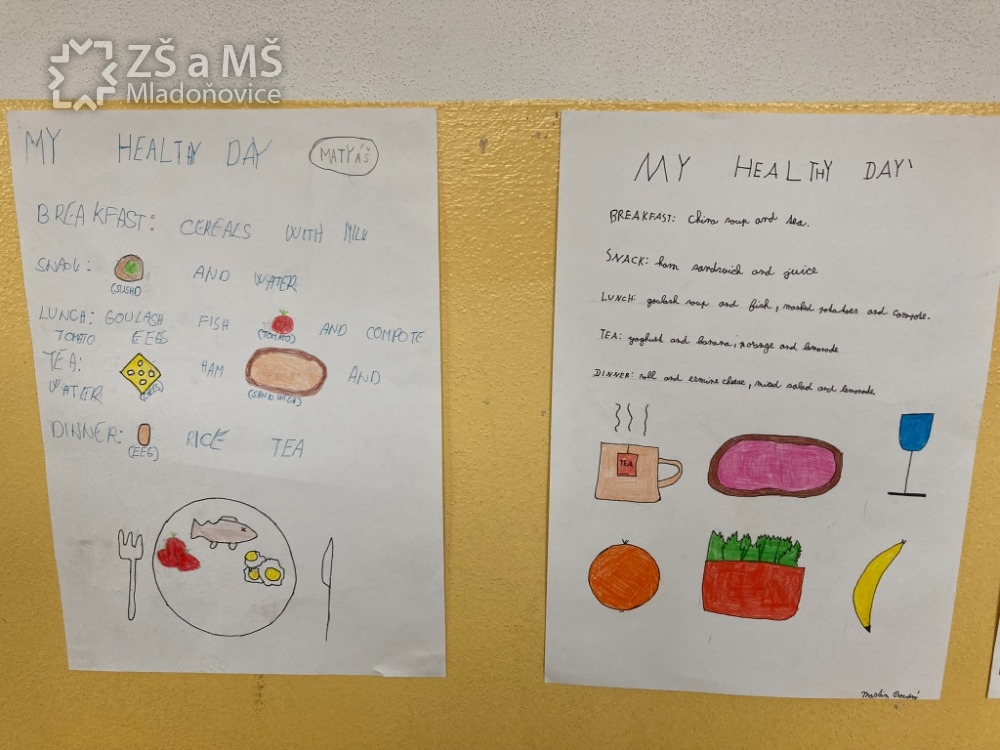 ZŠ a MŠ
Mladoňovice
MY HEALTHY DAY
MATYÁŠ
BREAKFAST: CEREALS WITH MILK
SNACK: (SUSHI) AND WATER
LUNCH: GOULASH FISH (TOMATO) AND COMPOTE
TOMATO EEGS
TEA: HAM (SANDWICH) AND
WATER
DINNER: (EEG) RICE TEA
MY HEALTHY DAY
BREAKFAST: China soup and tea.
SNACK: ham sandwich and juice
LUNCH: goulash soup and fish, mashed potatoes and compote.
TEA: yoghurt and banana, orange and lemonade
DINNER: roll and ermine cheese, mixed salad and lemonade.
TEA
Martin